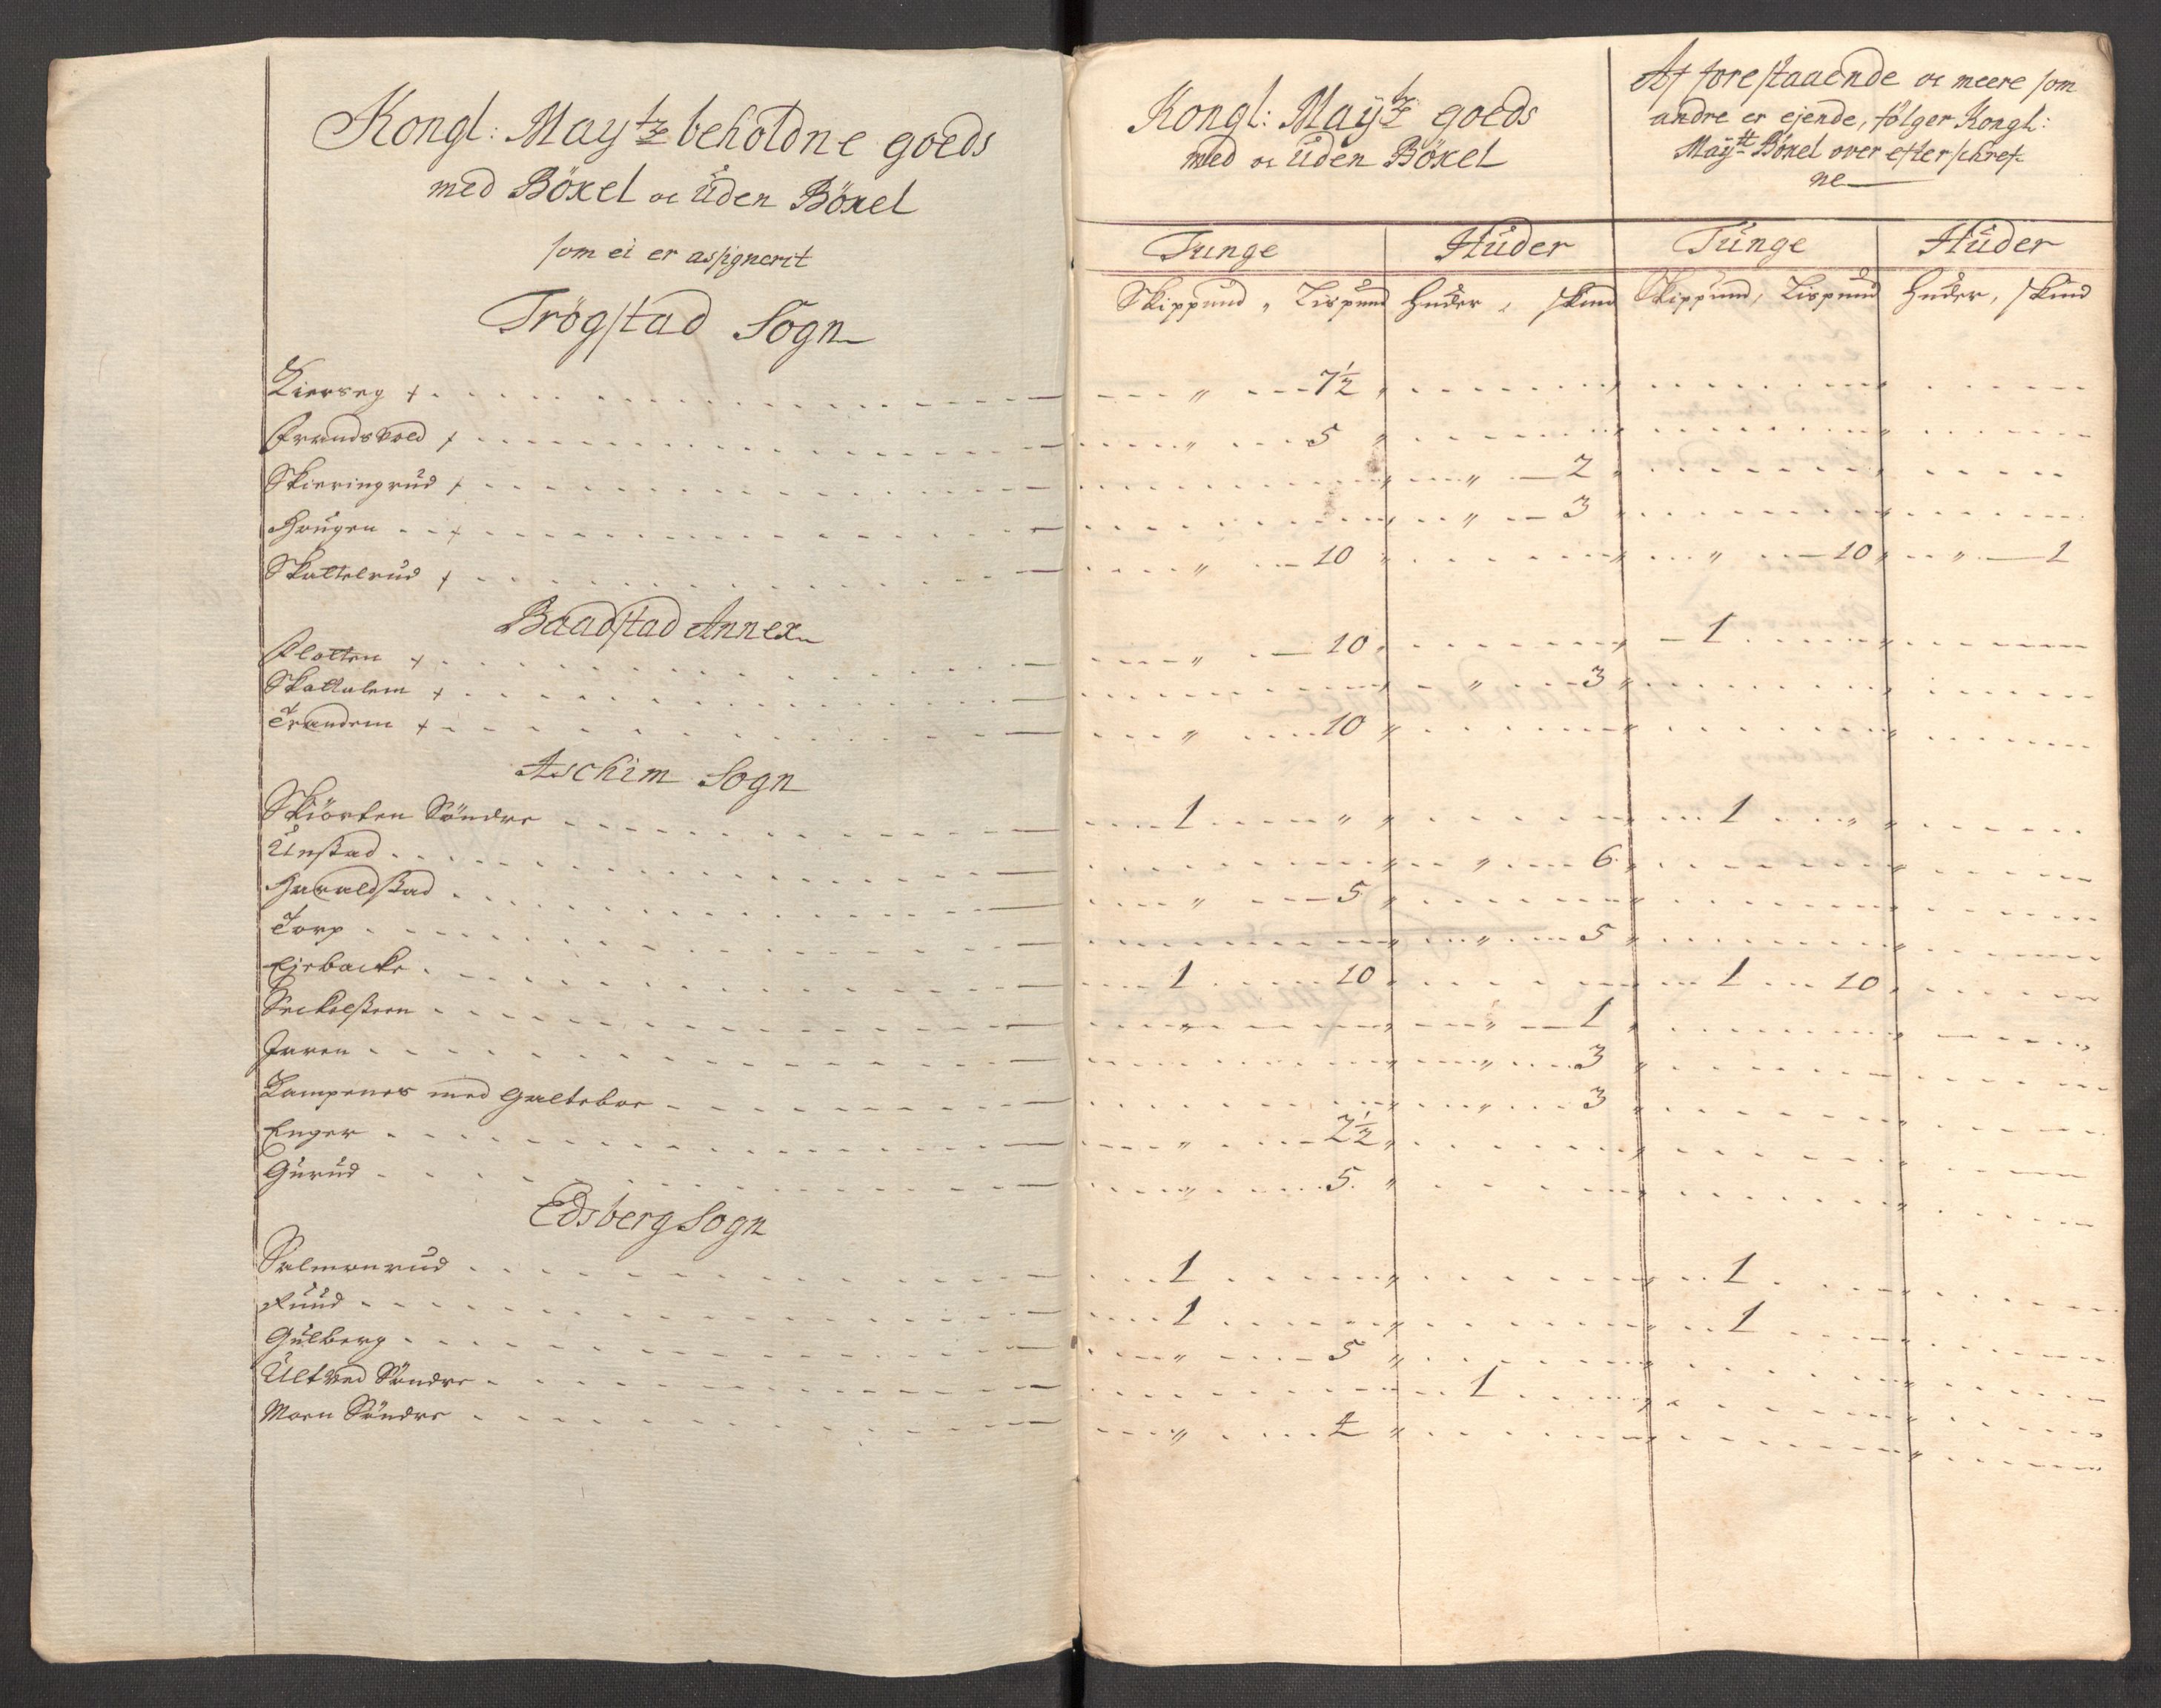 Kongl: Mayttz beholdne goeds
med Böxel oc uden Böxel
som ei er assignerit
Trögstad Sogn
Kierseg +
Frandsvold +
Skieringrud +
Haugen +
Skattelrud +
Baadstad Annex
Flotten +
Skallalem +
Trandem +
Aschim Sogn
Skiörten Söndre
Unstad
Haraldstad
Torp
Eiebacke
Seckelsteen
Faren
Kampenes med Galteboe
Enger
Gurud
Edsberg Sogn
Salmonrud
Ruud
Gulberg
Ultved Söndre
Moen Söndre
Kongl: Mayttz goeds
med oc uden Böxel
Af forestaaende oc meere som
andre er ejende, fölger Kongl:
Maytt Böxel over efterschref-
ne
Tunge Huder Tunge Huder
Skippund, Lispund Huder, skind Skippund, Lispund Huder, skind
" 7½
" 5
" 2
" 3
" 10 " 10 " 1
" 10 1
" 3
" 10
1 " 1 "
" 6
" 5
" 5
1 10 1 10
" 1
" 3
" 3
" 2½
" 5
1 1
1 1
" 5
1
" 4